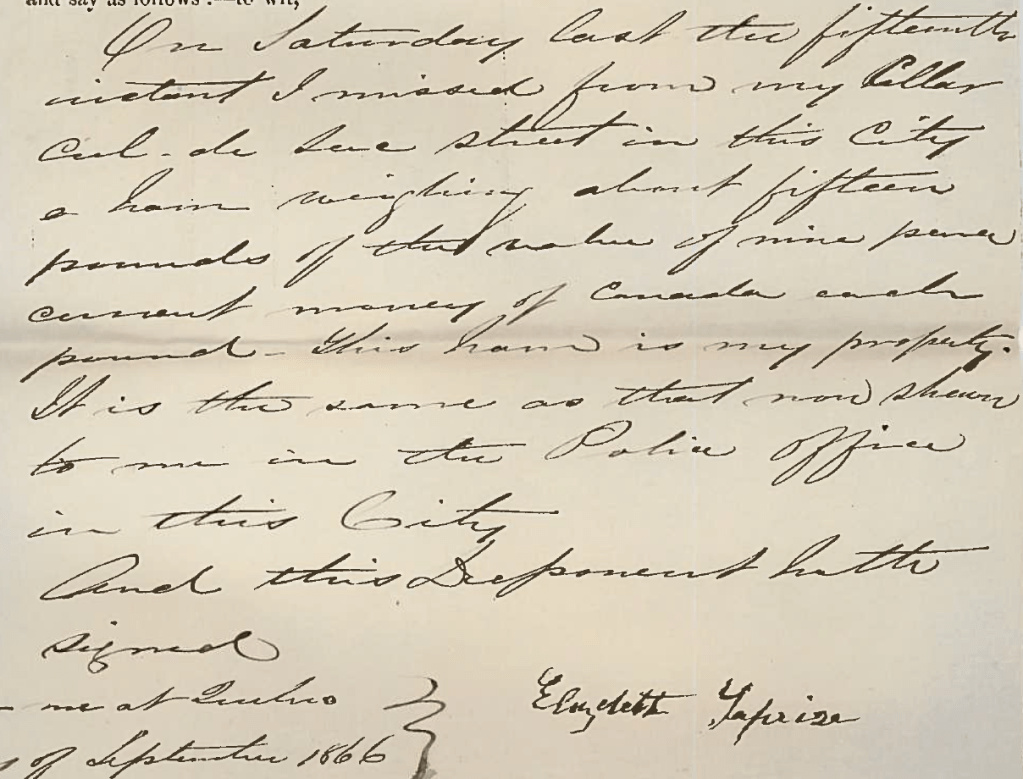 and say as follows :—to wit,
On Saturday last the fifteenth
instant I missed from my Cellar
Cul-de Sac street in this City
a ham weighing about fifteen
pounds of the value of nine pence
current money of Canada each
pound - This ham is my property.
It is the same as that now shewn
to me in the Police Office
in this City
And this Deponent hath
signed
me at Quebec
of September 1866
Elizabeth